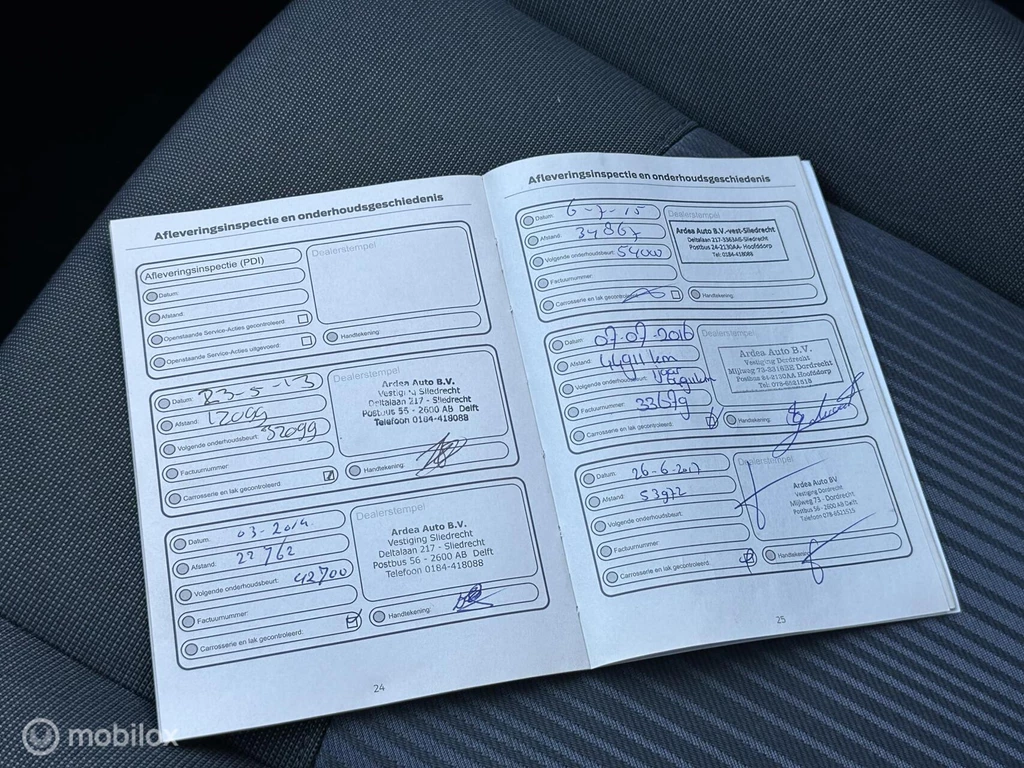 Afleveringsinspectie en onderhoudsgeschiedenis
Afleveringsinspectie (PDI)
Datum:
Afstand:
Openstaande Service-Acties gecontroleerd:
Openstaande Service-Acties uitgevoerd:
Dealerstempel
Handtekening:
Datum: 23-5-13
Afstand: 12099
Volgende onderhoudsbeurt: 32099
Factuurnummer:
Carrosserie en lak gecontroleerd:
Dealerstempel
Ardea Auto B.V.
Vestiging Sliedrecht
Deltalaan 217 - Sliedrecht
Postbus 55 - 2600 AB Delft
Telefoon 0184-418088
Handtekening:
Datum: 03-2014
Afstand: 22762
Volgende onderhoudsbeurt: 42700
Factuurnummer:
Carrosserie en lak gecontroleerd:
Dealerstempel
Ardea Auto B.V.
Vestiging Sliedrecht
Deltalaan 217 - Sliedrecht
Postbus 56 - 2600 AB Delft
Telefoon 0184-418088
Handtekening:
24
Afleveringsinspectie en onderhoudsgeschiedenis
Datum: 6-7-15
Afstand: 34867
Volgende onderhoudsbeurt: 54000
Factuurnummer:
Carrosserie en lak gecontroleerd:
Dealerstempel
Ardea Auto B.V.-vest-Sliedrecht
Deltalaan 217-3363AB-Sliedrecht
Postbus 24-2130AA- Hoofddorp
Tel: 0184-418088
Handtekening:
Datum: 07-07-2016
Afstand: 44911 km
Volgende onderhoudsbeurt: jaar
Factuurnummer: 33679
Carrosserie en lak gecontroleerd:
Dealerstempel
Ardea Auto B.V.
Vestiging Dordrecht
Mijlweg 73-3316BE Dordrecht
Postbus 24-2130AA Hoofddorp
Tel: 078-6521515
Handtekening:
Datum: 26-6-2017
Afstand: 53972
Volgende onderhoudsbeurt:
Factuurnummer:
Carrosserie en lak gecontroleerd:
Dealerstempel
Ardea Auto BV
Vestiging Dordrecht
Mijlweg 73 - Dordrecht
Postbus 56 - 2600 AB Delft
Telefoon 078-6521515
Handtekening:
25
mobilox